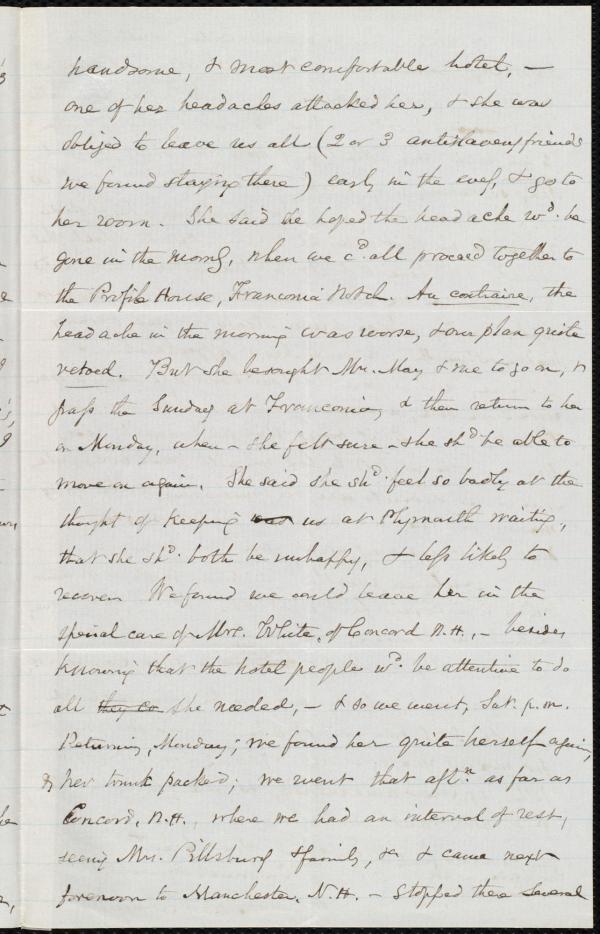 handsome, & most comfortable hotel, —
one of her headaches attacked her, & she was
obliged to leave us all (2 or 3 antislavery friends
we found staying there) early in the eveg, & go to
her room. She said she hoped the headache wd. be
gone in the morng, when we cd. all proceed together to
the Profile House, Franconia Notch. Au contraire, the
headache in the morning was worse, & our plan quite
vetoed. But she besought Mr. May & me to go on, &
pass the Sunday at Franconia, & then return to her
on Monday, when - she felt sure - she shd. be able to
move on again. She said she shd. feel so badly at the
thought of keeping us at Plymouth waiting,
that she shd. both be unhappy, & less likely to
recover. We found we could leave her in the
special care of Mrs. White, of Concord N.H., - besides
knowing that the hotel people wd. be attentive to do
all they co she needed, - & so we went, Sat. p.m.
Returning, Monday, we found her quite herself again,
& her trunk packed; we went that aftn. as far as
Concord, N.H., where we had an interval of rest,
seeing Mrs. Pillsbury & family, &c & came next
forenoon to Manchester, N.H. - Stopped there several